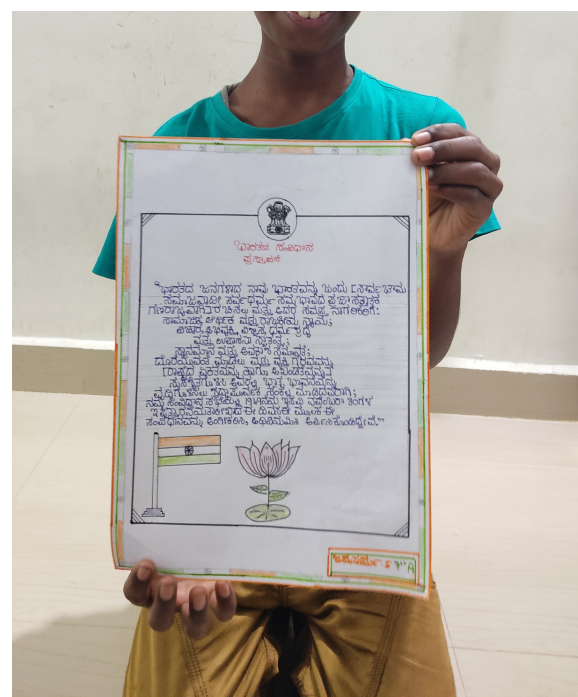 ಭಾರತದ ಸಂವಿಧಾನ
ಪ್ರಸ್ತಾವನೆ
"ಭಾರತದ ಜನಗಳಾದ ನಾವು ಭಾರತವನ್ನು ಒಂದು ಸಾರ್ವಭೌಮ
ಸಮಾಜವಾದೀ ಸರ್ವಧರ್ಮ ಸಮಭಾವದ ಪ್ರಜಾಸತ್ತಾತ್ಮಕ
ಗಣರಾಜ್ಯವಾಗಿ ರಚಿಸಲು ಮತ್ತು ಅದರ ಸಮಸ್ತ ನಾಗರಿಕರಿಗೆ:
ಸಾಮಾಜಿಕ ಆರ್ಥಿಕ ಮತ್ತು ರಾಜಕೀಯ ನ್ಯಾಯ;
ವಿಚಾರ ಅಭಿವ್ಯಕ್ತಿ, ವಿಶ್ವಾಸ ಧರ್ಮಶ್ರದ್ಧೆ
ಮತ್ತು ಉಪಾಸನಾ ಸ್ವಾತಂತ್ರ್ಯ;
ಸ್ಥಾನಮಾನ ಮತ್ತು ಅವಕಾಶ ಸಮಾನತೆ;
ದೊರೆಯುವಂತೆ ಮಾಡಲು ಮತ್ತು ವ್ಯಕ್ತಿ ಗೌರವವನ್ನು
ರಾಷ್ಟ್ರದ ಏಕತೆಯನ್ನು ಹಾಗೂ ಅಖಂಡತೆಯನ್ನು
ಸುನಿಶ್ಚಿತಗೊಳಿಸಿ ಅವರಲ್ಲಿ ಭ್ರಾತೃ ಭಾವನೆಯನ್ನು
ವೃದ್ಧಿಗೊಳಿಸಲು ಶ್ರದ್ಧಾಪೂರ್ವಕ ಸಂಕಲ್ಪ ಮಾಡಿದವರಾಗಿ;
ನಮ್ಮ ಸಂವಿಧಾನ ಸಭೆಯಲ್ಲಿ ೧೯೪೯ನೆಯ ಇಸವಿ ನವೆಂಬರ್ ತಿಂಗಳ
ಈ ದಿವಸ ಈ ಮೂಲಕ ಈ
ಸಂವಿಧಾನವನ್ನು ಅಂಗೀಕರಿಸಿ, ಅರ್ಪಿಸಿಕೊಂಡಿದ್ದೇವೆ."